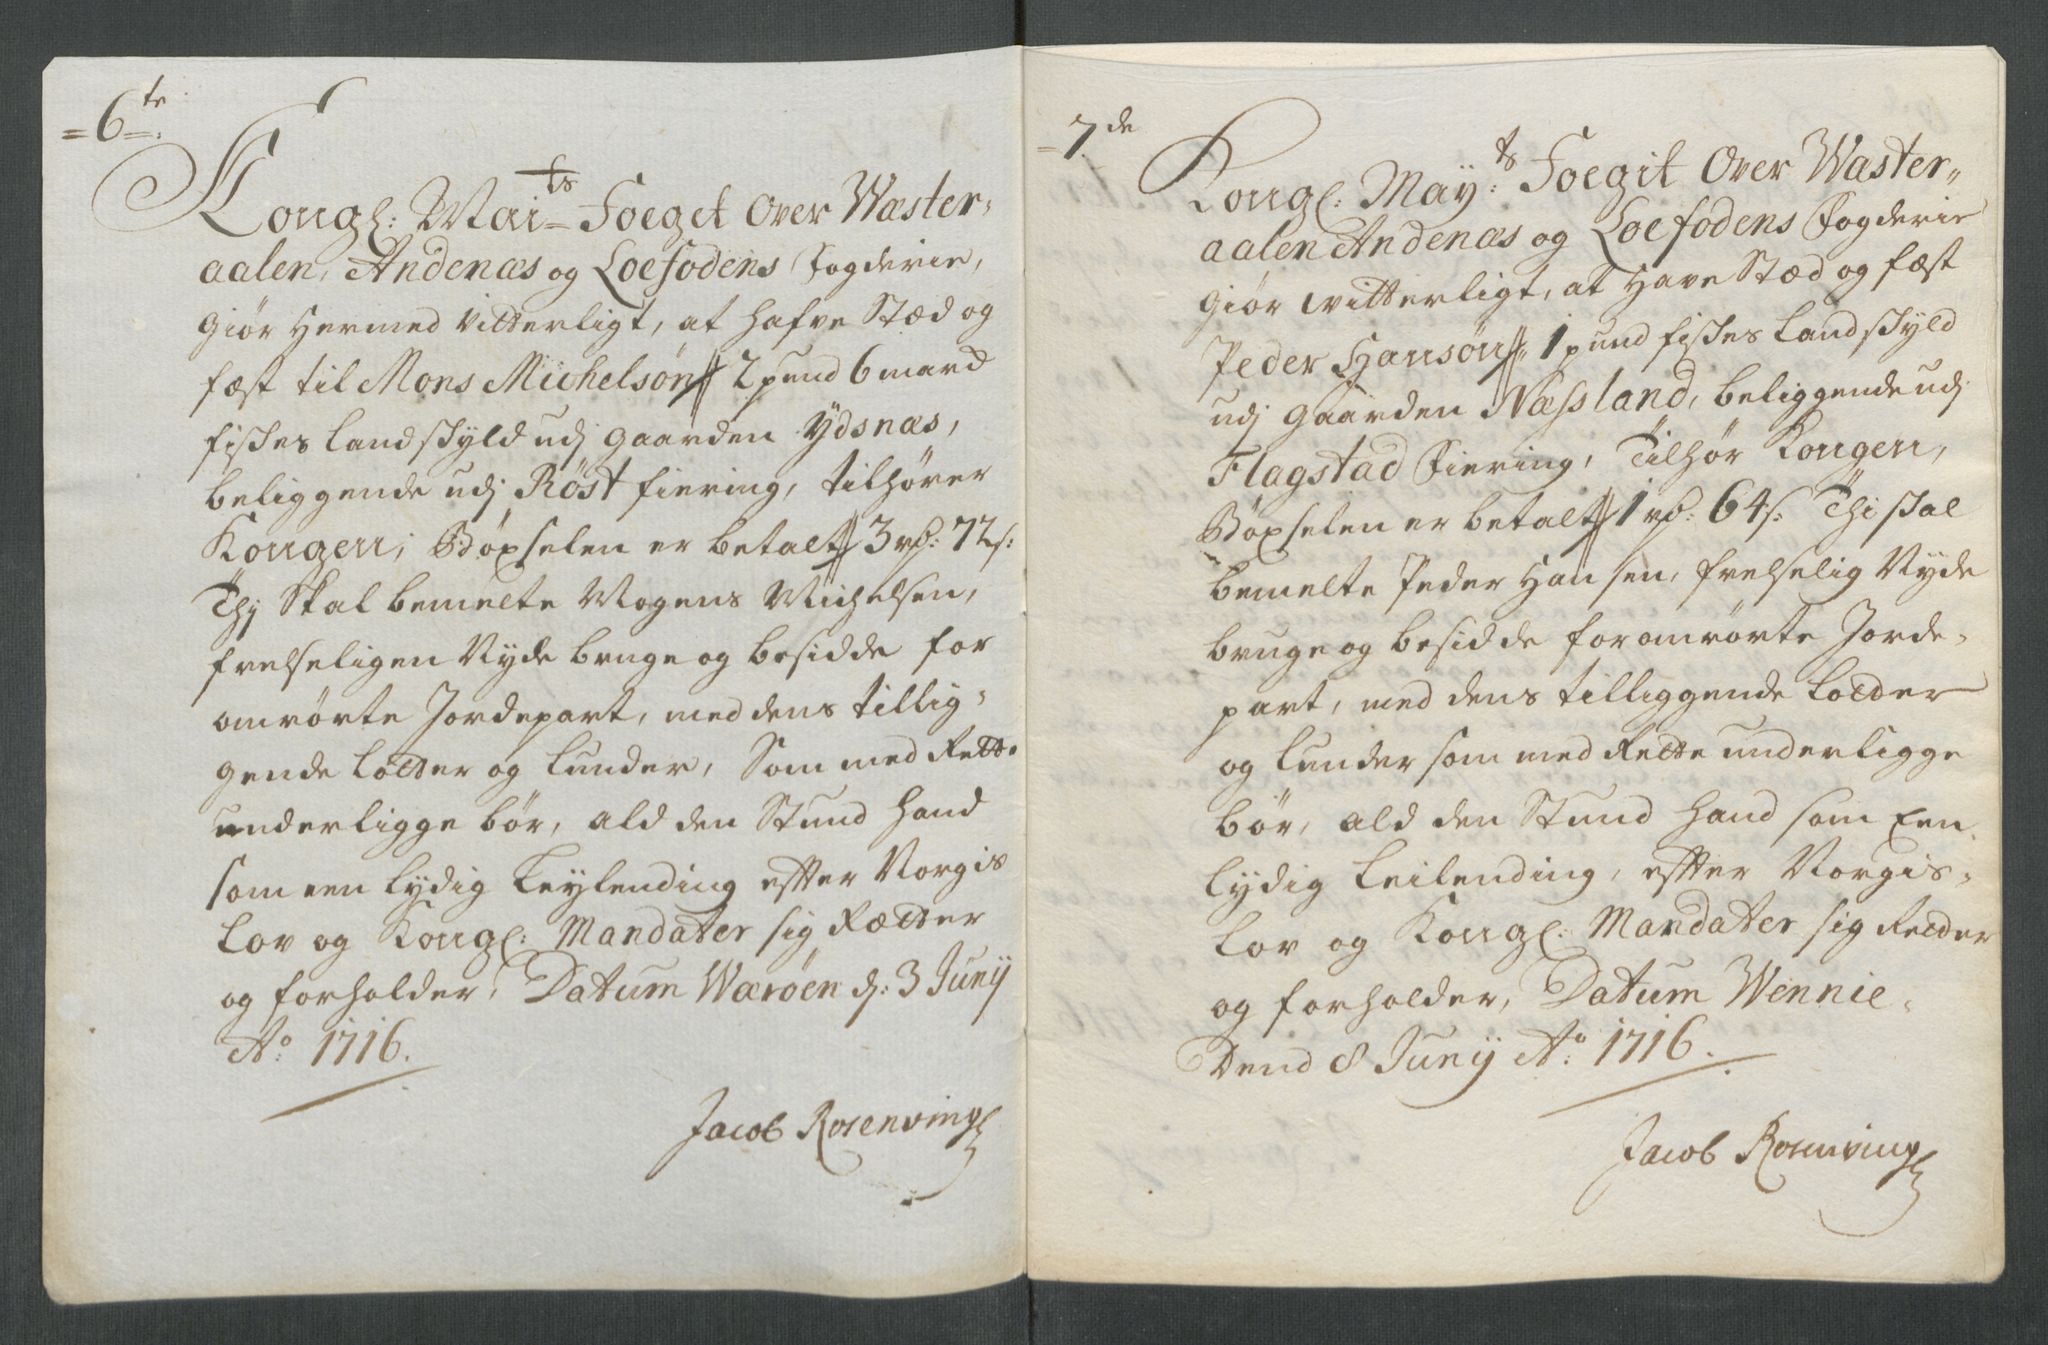 =6te=:
Kongl: Maits Foeget Over Wæster-
aalen, Andenæs og Loefodens Fogderie,
Giør Hermed Vitterligt, at hafve Stæd og
fæst til Mons Michelsøn // 2 pund 6 mard
fiskes Landskyld udj gaarden Ydsnæs,
beliggende udj Röst fiering, tilhører
Kongen; Bøxselen er betalt // 3 rd: 72 s:
Thj Skal bemelte Mogens Michelsen,
frelseligen Nyde bruge og besidde for
omrørte Jordepart, med dens tillig-
gende Lotter og Lunder, Som med Rette
underligge bør, ald den Stund hand
som een lydig Leylending efter Norgis
Lov og Kongl: Mandater sig Rætter
og forholder, Datum Wærøen d: 3 Junij
Ao: 1716.
Jacob Rosenving
=7de
Kongl: Mayts: Foegit Over Wæster-
aalen Andenæs og Loefodens Fogderie
Giør vitterligt, at Have Stæd og fæst
Peder Hansøn // 1 pund fiskes Landskyld
udj Gaarden Næssland, beliggende udj
Flagstad Fiering, Tilhør Kongen,
Bøxselen er betalt // 1 rd: 64 s: Thi skal
bemelte Peder Hansen, frelselig Nyde
bruge og besidde foromrørte Jorde-
part, med dens tilliggende Lotter
og Lunder som med Rette underligge
bør, ald den Stund hand som Een
lydig Leilending, efter Norgis-
Lov og Kongl: Mandater sig Retter
og forholder, Datum Wennie-
Dend 8 Junij Ao: 1716.
Jacob Rosenving